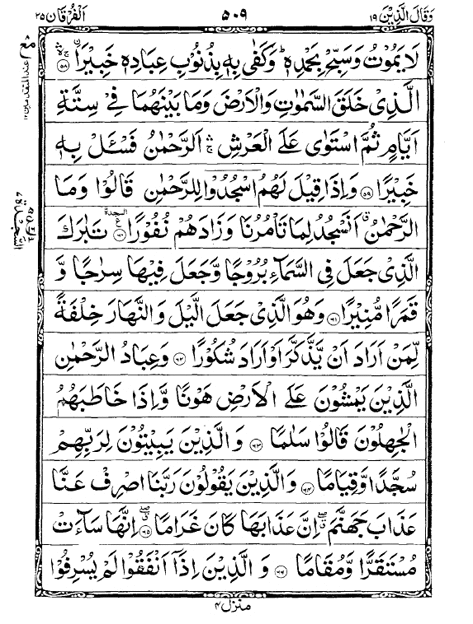 وَقَالَ الَّذِيْنَ ١٩ ٥٠٩ اَلْفُرْقَان ٢٥
لَا يَمُوْتُ وَسَبِّحْ بِحَمْدِهٖ ؕ وَكَفٰى بِهٖ بِذُنُوْبِ عِبَادِهٖ خَبِيْرًا ۚۛ ﴿٥٨﴾
الَّذِىْ خَلَقَ السَّمٰوٰتِ وَالْاَرْضَ وَمَا بَيْنَهُمَا فِىْ سِتَّةِ
اَيَّامٍ ثُمَّ اسْتَوٰى عَلَى الْعَرْشِ ۚۛ اَلرَّحْمٰنُ فَسْـَٔلْ بِهٖ
خَبِيْرًا ﴿٥٩﴾ وَاِذَا قِيْلَ لَهُمُ اسْجُدُوْا لِلرَّحْمٰنِ قَالُوْا وَمَا
الرَّحْمٰنُ ۗ اَنَسْجُدُ لِمَا تَاْمُرُنَا وَزَادَهُمْ نُفُوْرًا ﴿٦٠﴾ تَبٰرَكَ
الَّذِىْ جَعَلَ فِى السَّمَآءِ بُرُوْجًا وَّجَعَلَ فِيْهَا سِرٰجًا وَّ
قَمَرًا مُّنِيْرًا ﴿٦١﴾ وَهُوَ الَّذِىْ جَعَلَ الَّيْلَ وَالنَّهَارَ خِلْفَةً
لِّمَنْ اَرَادَ اَنْ يَّذَّكَّرَ اَوْ اَرَادَ شُكُوْرًا ﴿٦٢﴾ وَعِبَادُ الرَّحْمٰنِ
الَّذِيْنَ يَمْشُوْنَ عَلَى الْاَرْضِ هَوْنًا وَّاِذَا خَاطَبَهُمُ
الْجٰهِلُوْنَ قَالُوْا سَلٰمًا ﴿٦٣﴾ وَالَّذِيْنَ يَبِيْتُوْنَ لِرَبِّهِمْ
سُجَّدًا وَّقِيَامًا ﴿٦٤﴾ وَالَّذِيْنَ يَقُوْلُوْنَ رَبَّنَا اصْرِفْ عَنَّا
عَذَابَ جَهَنَّمَ ۖ اِنَّ عَذَابَهَا كَانَ غَرَامًا ﴿٦٥﴾ اِنَّهَا سَآءَتْ
مُسْتَقَرًّا وَّمُقَامًا ﴿٦٦﴾ وَالَّذِيْنَ اِذَآ اَنْفَقُوْا لَمْ يُسْرِفُوْا
منزل ٤